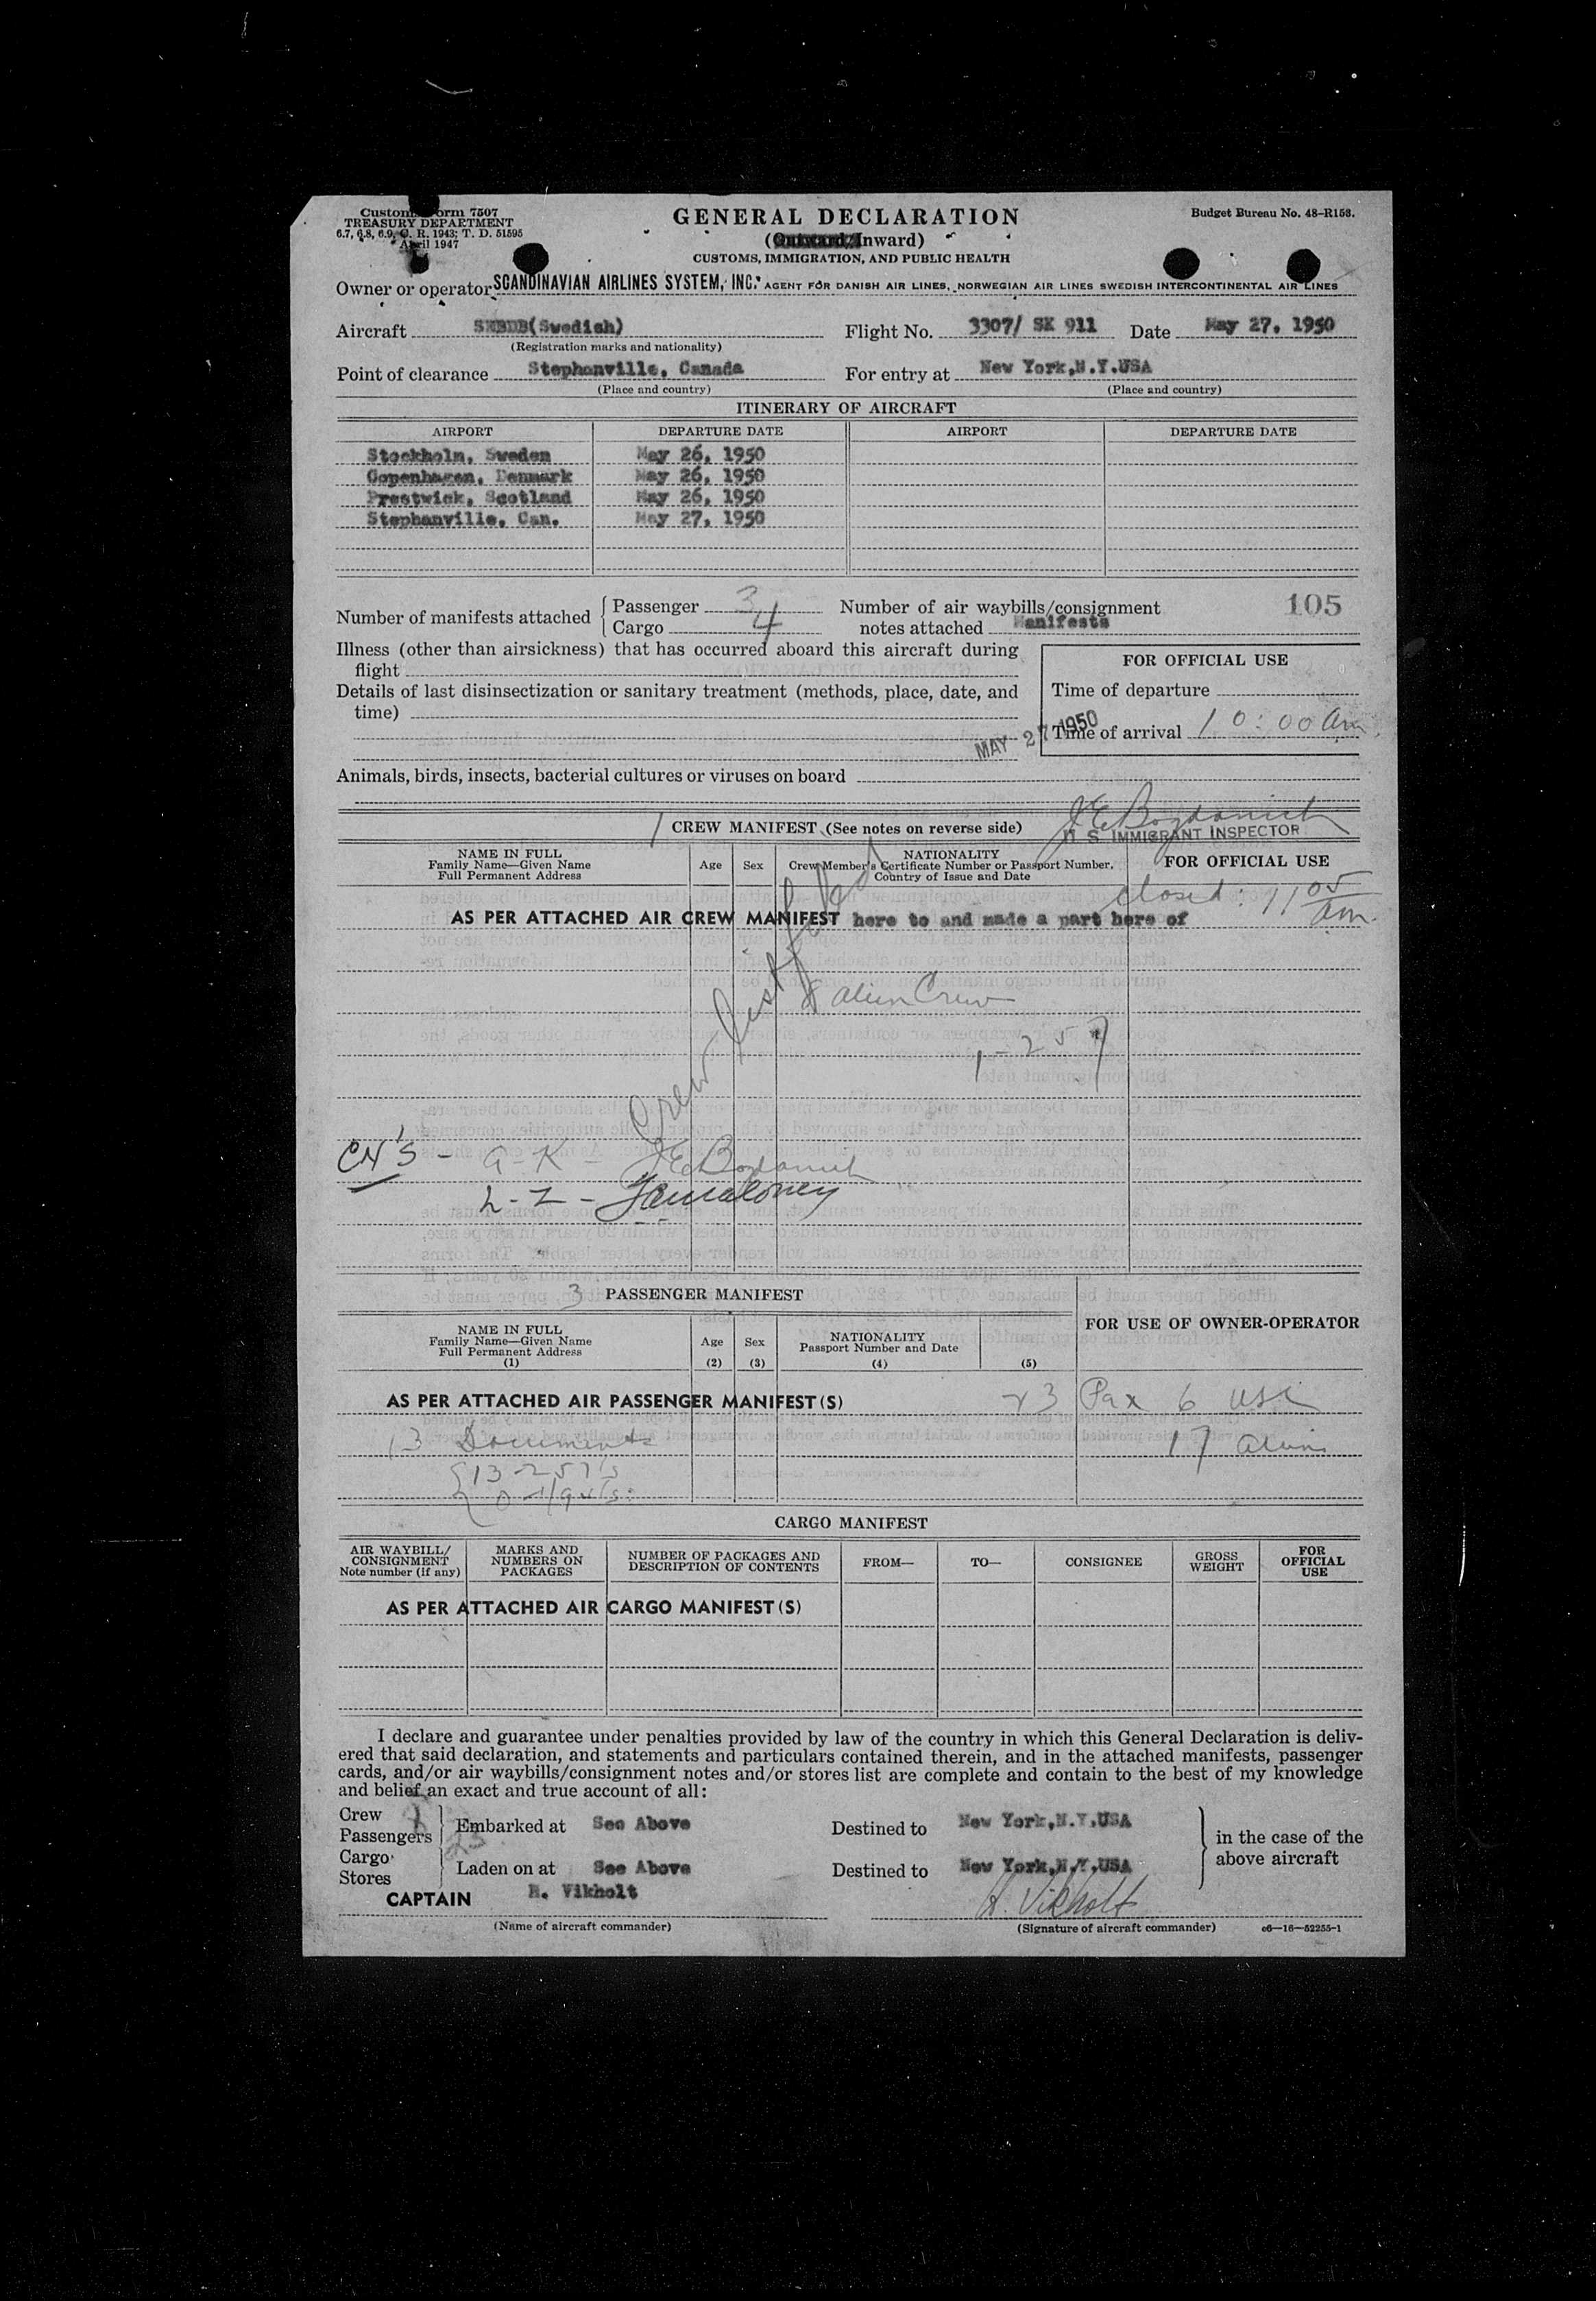 Customs Form 7507
TREASURY DEPARTMENT
6.7, 6.8, 6.9, C. R. 1943; T. D. 51595
April 1947
GENERAL DECLARATION
(Outward/Inward)
CUSTOMS, IMMIGRATION, AND PUBLIC HEALTH
Budget Bureau No. 48-R158.
Owner or operator SCANDINAVIAN AIRLINES SYSTEM, INC. AGENT FOR DANISH AIR LINES, NORWEGIAN AIR LINES SWEDISH INTERCONTINENTAL AIR LINES
Aircraft SEBDB(Swedish) Flight No. 3307/ SK 911 Date May 27, 1950
(Registration marks and nationality)
Point of clearance Stephanville, Canada For entry at New York,N.Y.USA
(Place and country) (Place and country)
ITINERARY OF AIRCRAFT
AIRPORT DEPARTURE DATE AIRPORT DEPARTURE DATE
Stockholm, Sweden May 26, 1950
Copenhagen, Denmark May 26, 1950
Prestwick, Scotland May 26, 1950
Stephanville, Can. May 27, 1950
105
Number of manifests attached { Passenger 3 Number of air waybills/consignment
Cargo 4 notes attached Manifests
Illness (other than airsickness) that has occurred aboard this aircraft during
flight
Details of last disinsectization or sanitary treatment (methods, place, date, and
time)
FOR OFFICIAL USE
Time of departure
Time of arrival 10:00 am.
MAY 27 1950
Animals, birds, insects, bacterial cultures or viruses on board
J E Bogdanich
U S IMMIGRANT INSPECTOR
1 CREW MANIFEST (See notes on reverse side)
NAME IN FULL
Family Name—Given Name
Full Permanent Address
Age Sex
NATIONALITY
Crew Member's Certificate Number or Passport Number,
Country of Issue and Date
FOR OFFICIAL USE
closed: 11 05 am.
AS PER ATTACHED AIR CREW MANIFEST here to and made a part here of
Crew list
8 alien Crew
1-257
CN's - A-K - J E Bogdanich
L-Z -
3 PASSENGER MANIFEST
NAME IN FULL
Family Name—Given Name
Full Permanent Address
(1)
Age
(2)
Sex
(3)
NATIONALITY
Passport Number and Date
(4)
(5)
FOR USE OF OWNER-OPERATOR
AS PER ATTACHED AIR PASSENGER MANIFEST(S) 23 Pax 6 USC
13 Documents 17 aliens
{ 13-257's
CARGO MANIFEST
AIR WAYBILL/
CONSIGNMENT
Note number (if any)
MARKS AND
NUMBERS ON
PACKAGES
NUMBER OF PACKAGES AND
DESCRIPTION OF CONTENTS
FROM—
TO—
CONSIGNEE
GROSS
WEIGHT
FOR
OFFICIAL
USE
AS PER ATTACHED AIR CARGO MANIFEST(S)
I declare and guarantee under penalties provided by law of the country in which this General Declaration is deliv-
ered that said declaration, and statements and particulars contained therein, and in the attached manifests, passenger
cards, and/or air waybills/consignment notes and/or stores list are complete and contain to the best of my knowledge
and belief an exact and true account of all:
Crew 8
Passengers 23
Embarked at See Above Destined to New York,N.Y.USA
Cargo
Stores
Laden on at See Above Destined to New York,N.Y.USA
in the case of the
above aircraft
CAPTAIN H. Vikholt H. Vikholt
(Name of aircraft commander) (Signature of aircraft commander) c6—16—52255-1